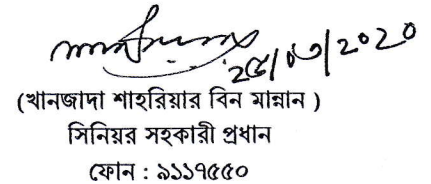 ২৫/০৩/2020
(খানজাদা শাহরিয়ার বিন মান্নান )
সিনিয়র সহকারী প্রধান
ফোন : ৯১১৭৫৫০